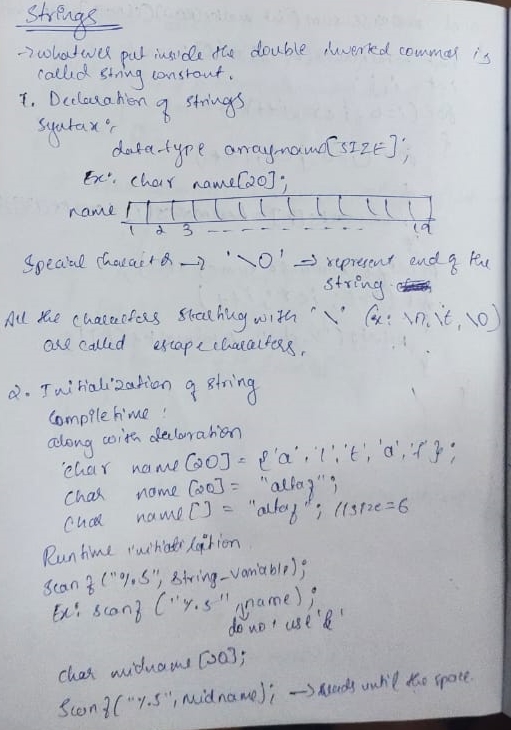 Strings
→ whatever put inside the double inverted commas is
called string constant.
1. Declaration of strings
Syntax:
data-type arrayname[SIZE];
Ex: char name[20];
name
1 2 3 - - - - - - - - - - - 19
Special character → '\0' ⇒ represent end of the
string.
All the characters starting with '\' (ex: \n, \t, \0)
are called escape characters.
2. Initialization of string
Compile time :
along with declaration
char name[20] = {'a','l','t','a','f'};
char name[20] = "altaf";
char name[] = "altaf"; //size=6
Runtime initialization
scanf("%s", string_variable);
Ex: scanf("%s", name);
do not use '&'
char midname[20];
Scanf("%s", midname); → reads until the space.